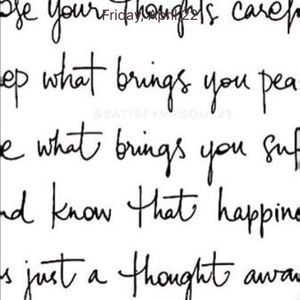 ose your thoughts caref
Friday, April 22
ep what brings you pea
@SATISFYMYSOUL23
e what brings you suf
nd know that happine
s just a thought awa